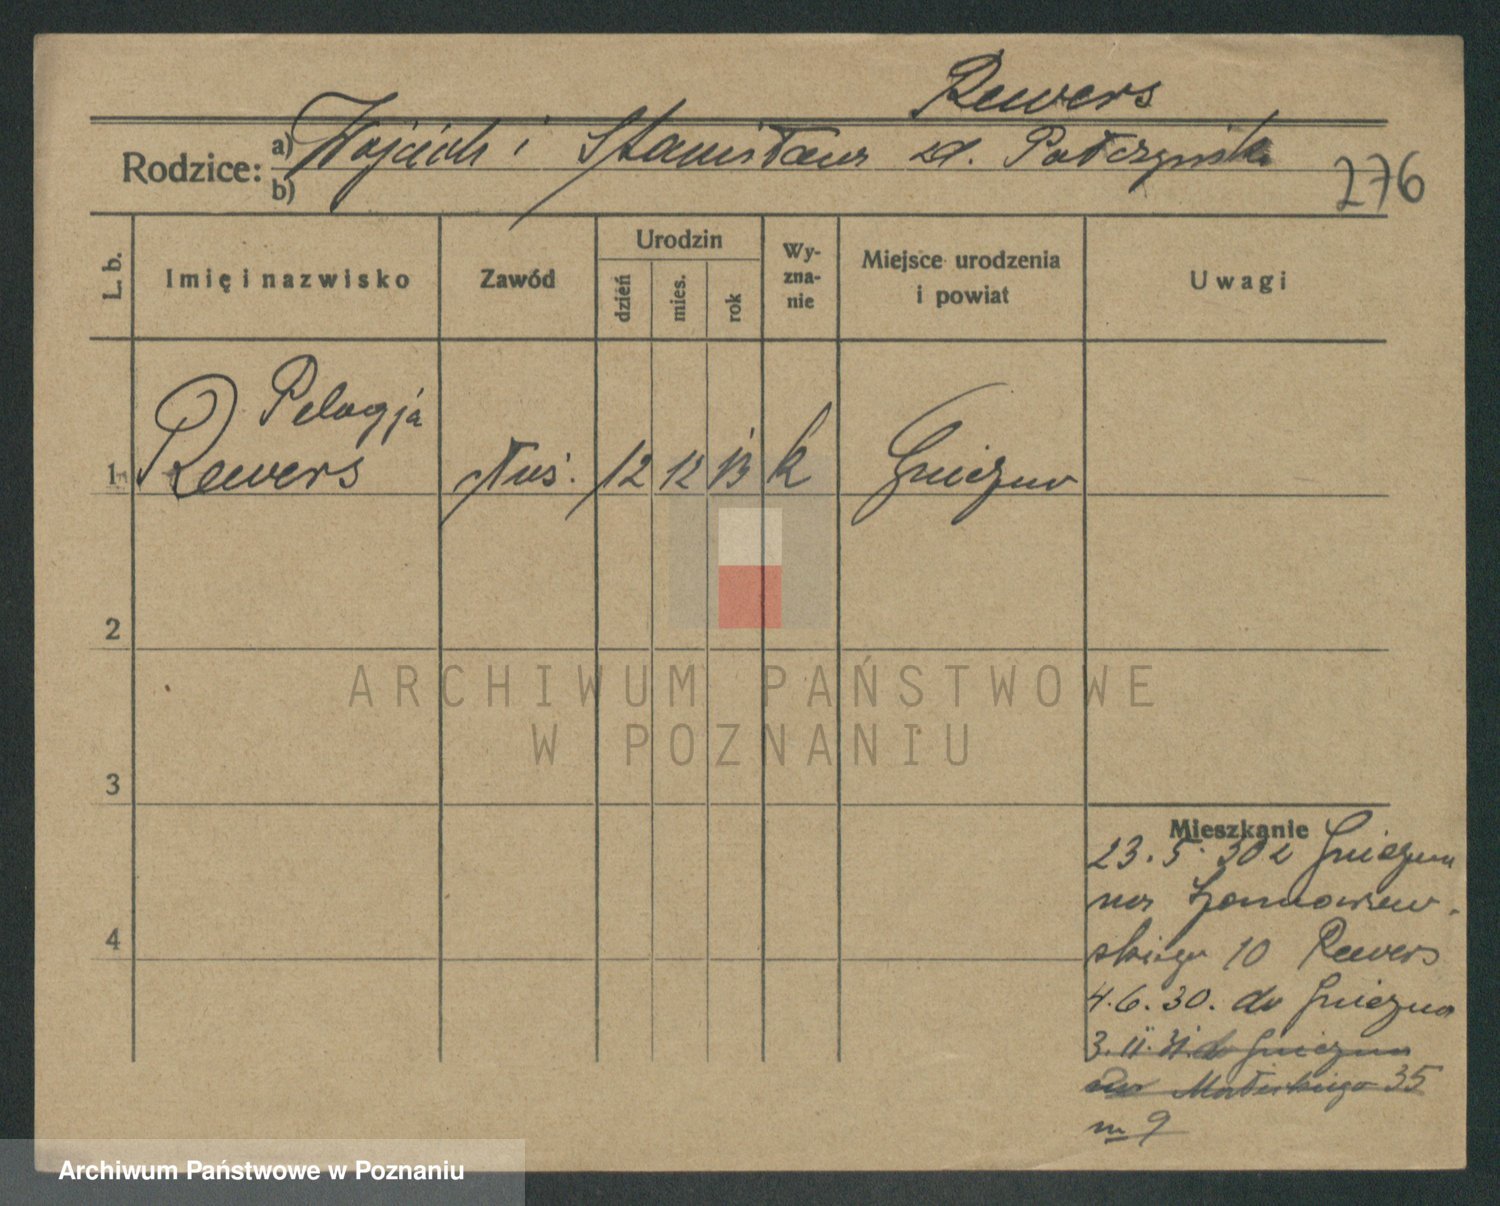 Rewers
Rodzice: a) Wojciech i Stanisława zd. Połczyńska
b)
276
L. b.
Imię i nazwisko
Zawód
Urodzin
dzień
mies.
rok
Wy-
zna-
nie
Miejsce urodzenia
i powiat
Uwagi
Pelagja
1 Rewers służ. 12 12 13 k Gniezno
2
3
4
ARCHIWUM PAŃSTWOWE
W POZNANIU
Mieszkanie
23.5.30 z Gniezna
na
skiego 10 Rewers
4.6.30. do Gniezna
3.II.31. do Gniezna
35
m 9
Archiwum Państwowe w Poznaniu